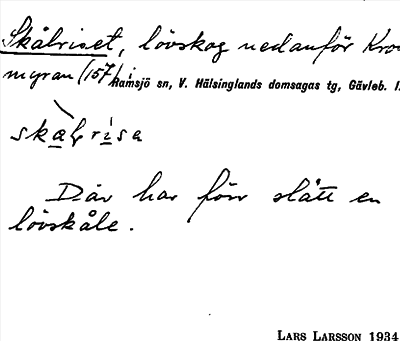 Skålriset, lövskog nedanför Kro
myran (157) i Ramsjö sn, V. Hälsinglands domsagas tg, Gävleb. l.
skałrisa
Där har förr slått en
lövskåle.
LARS LARSSON 1934